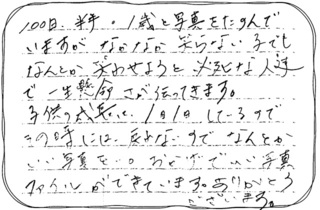 100日、半年、1歳と写真をたのんで
いますが なかなか笑らない子でも
なんとか笑わせようと必死な人達
で一生懸命さが伝ってきます。
子供の成長は、1日1日しているので
この時には、戻れないのでなんとか
いい写真を。おかげでいい写真
ファイルができています。ありがとう
ございます。